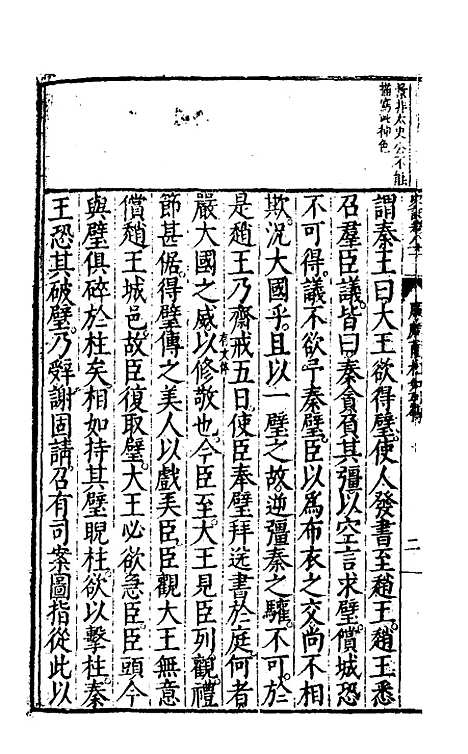 景非太史公不能
描寫此神色
謂秦王曰大王欲得璧使人發書至趙王趙王悉
召羣臣議皆曰秦貪負其彊以空言求璧償城恐
不可得議不欲予秦璧臣以爲布衣之交尚不相
欺況大國乎且以一璧之故逆彊秦之驩不可於
是趙王乃齋戒五日使臣奉璧拜送書於庭何者
嚴大國之威以修敬也今臣至大王見臣列觀禮
節甚倨得璧傳之美人以戲弄臣臣觀大王無意
償趙王城邑故臣復取璧大王必欲急臣臣頭今
與璧俱碎於柱矣相如持其璧睨柱欲以擊柱秦
王恐其破璧乃辭謝固請召有司案圖指從此以
二